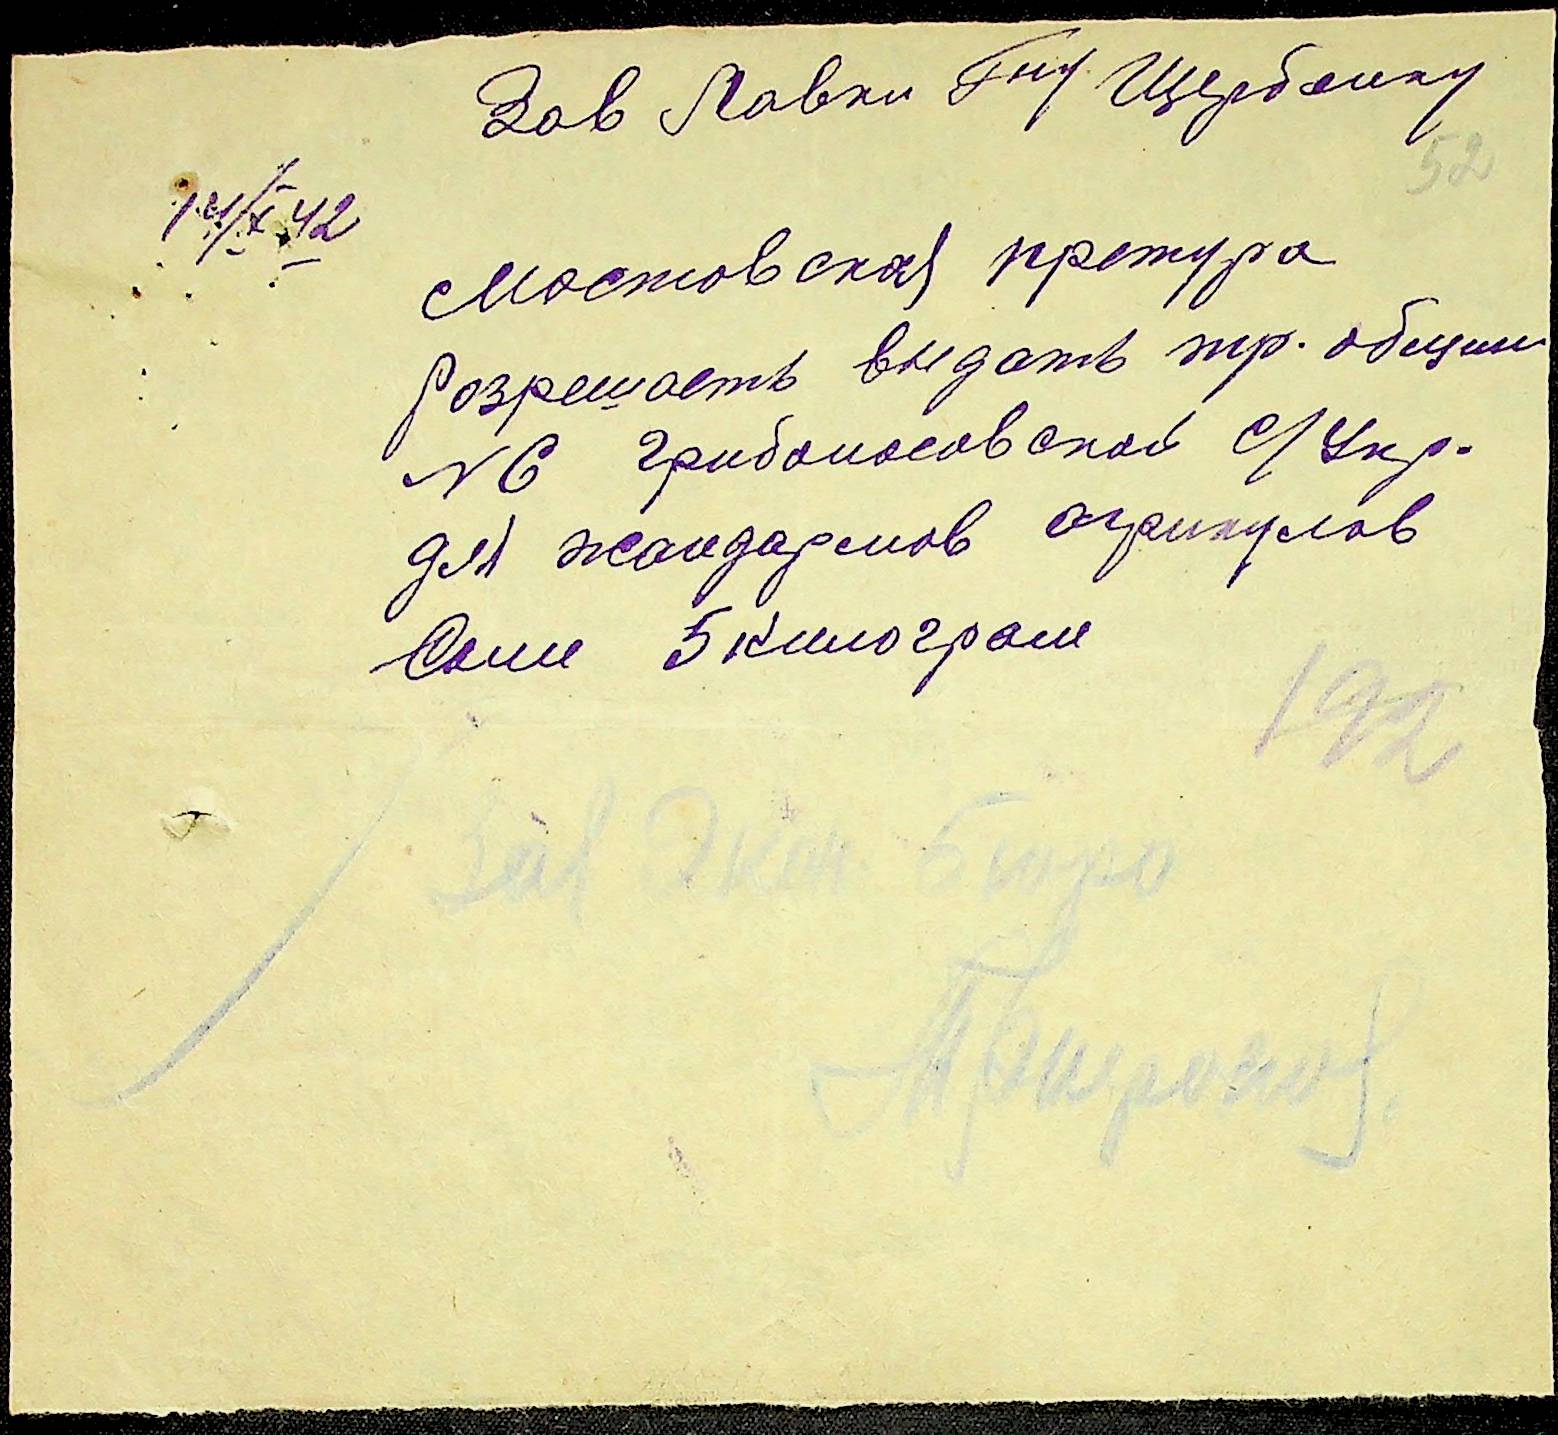 Зав Лавки Гну Щербаину
52
14/X 42
Мостовская претура
Розрешаеть выдать тр. общине
№ 6 Грибоносовской с/Упр.
для жандармов агрикулов
Соли 5 килограм
192
Зав Экон. Бюро